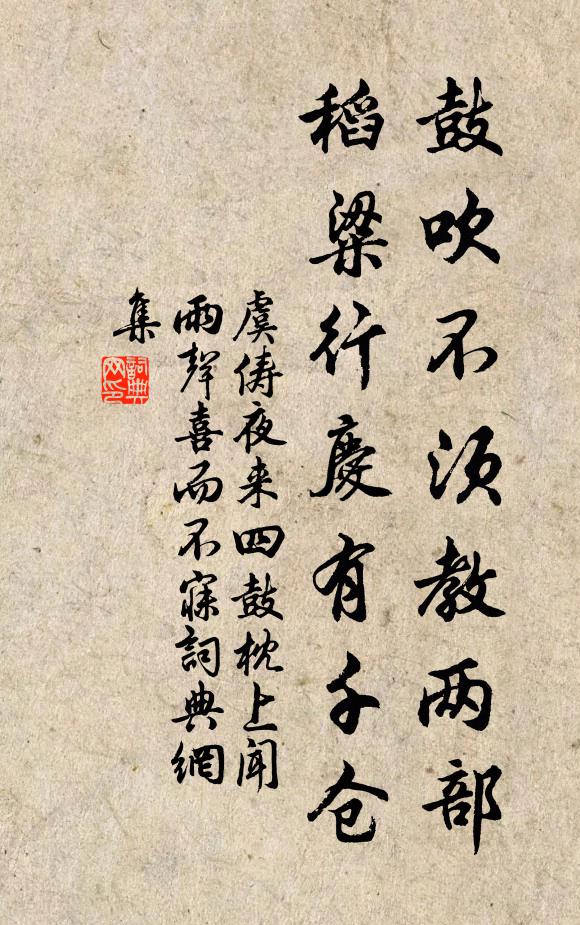 鼓吹不须教两部
稻粱行慶有千仓
虞俦夜来四鼓枕上闻
雨聲喜而不寐詞典網
集
詞典
网印